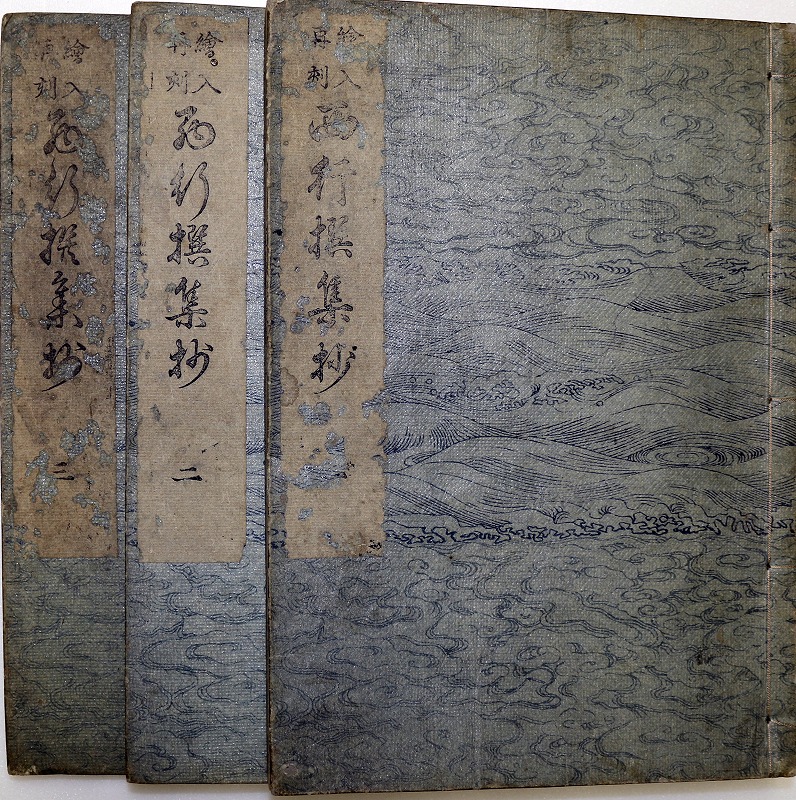 繪入
再刻
西行撰集抄
繪入
再刻
西行撰集抄
二
繪入
再刻
西行撰集抄
三